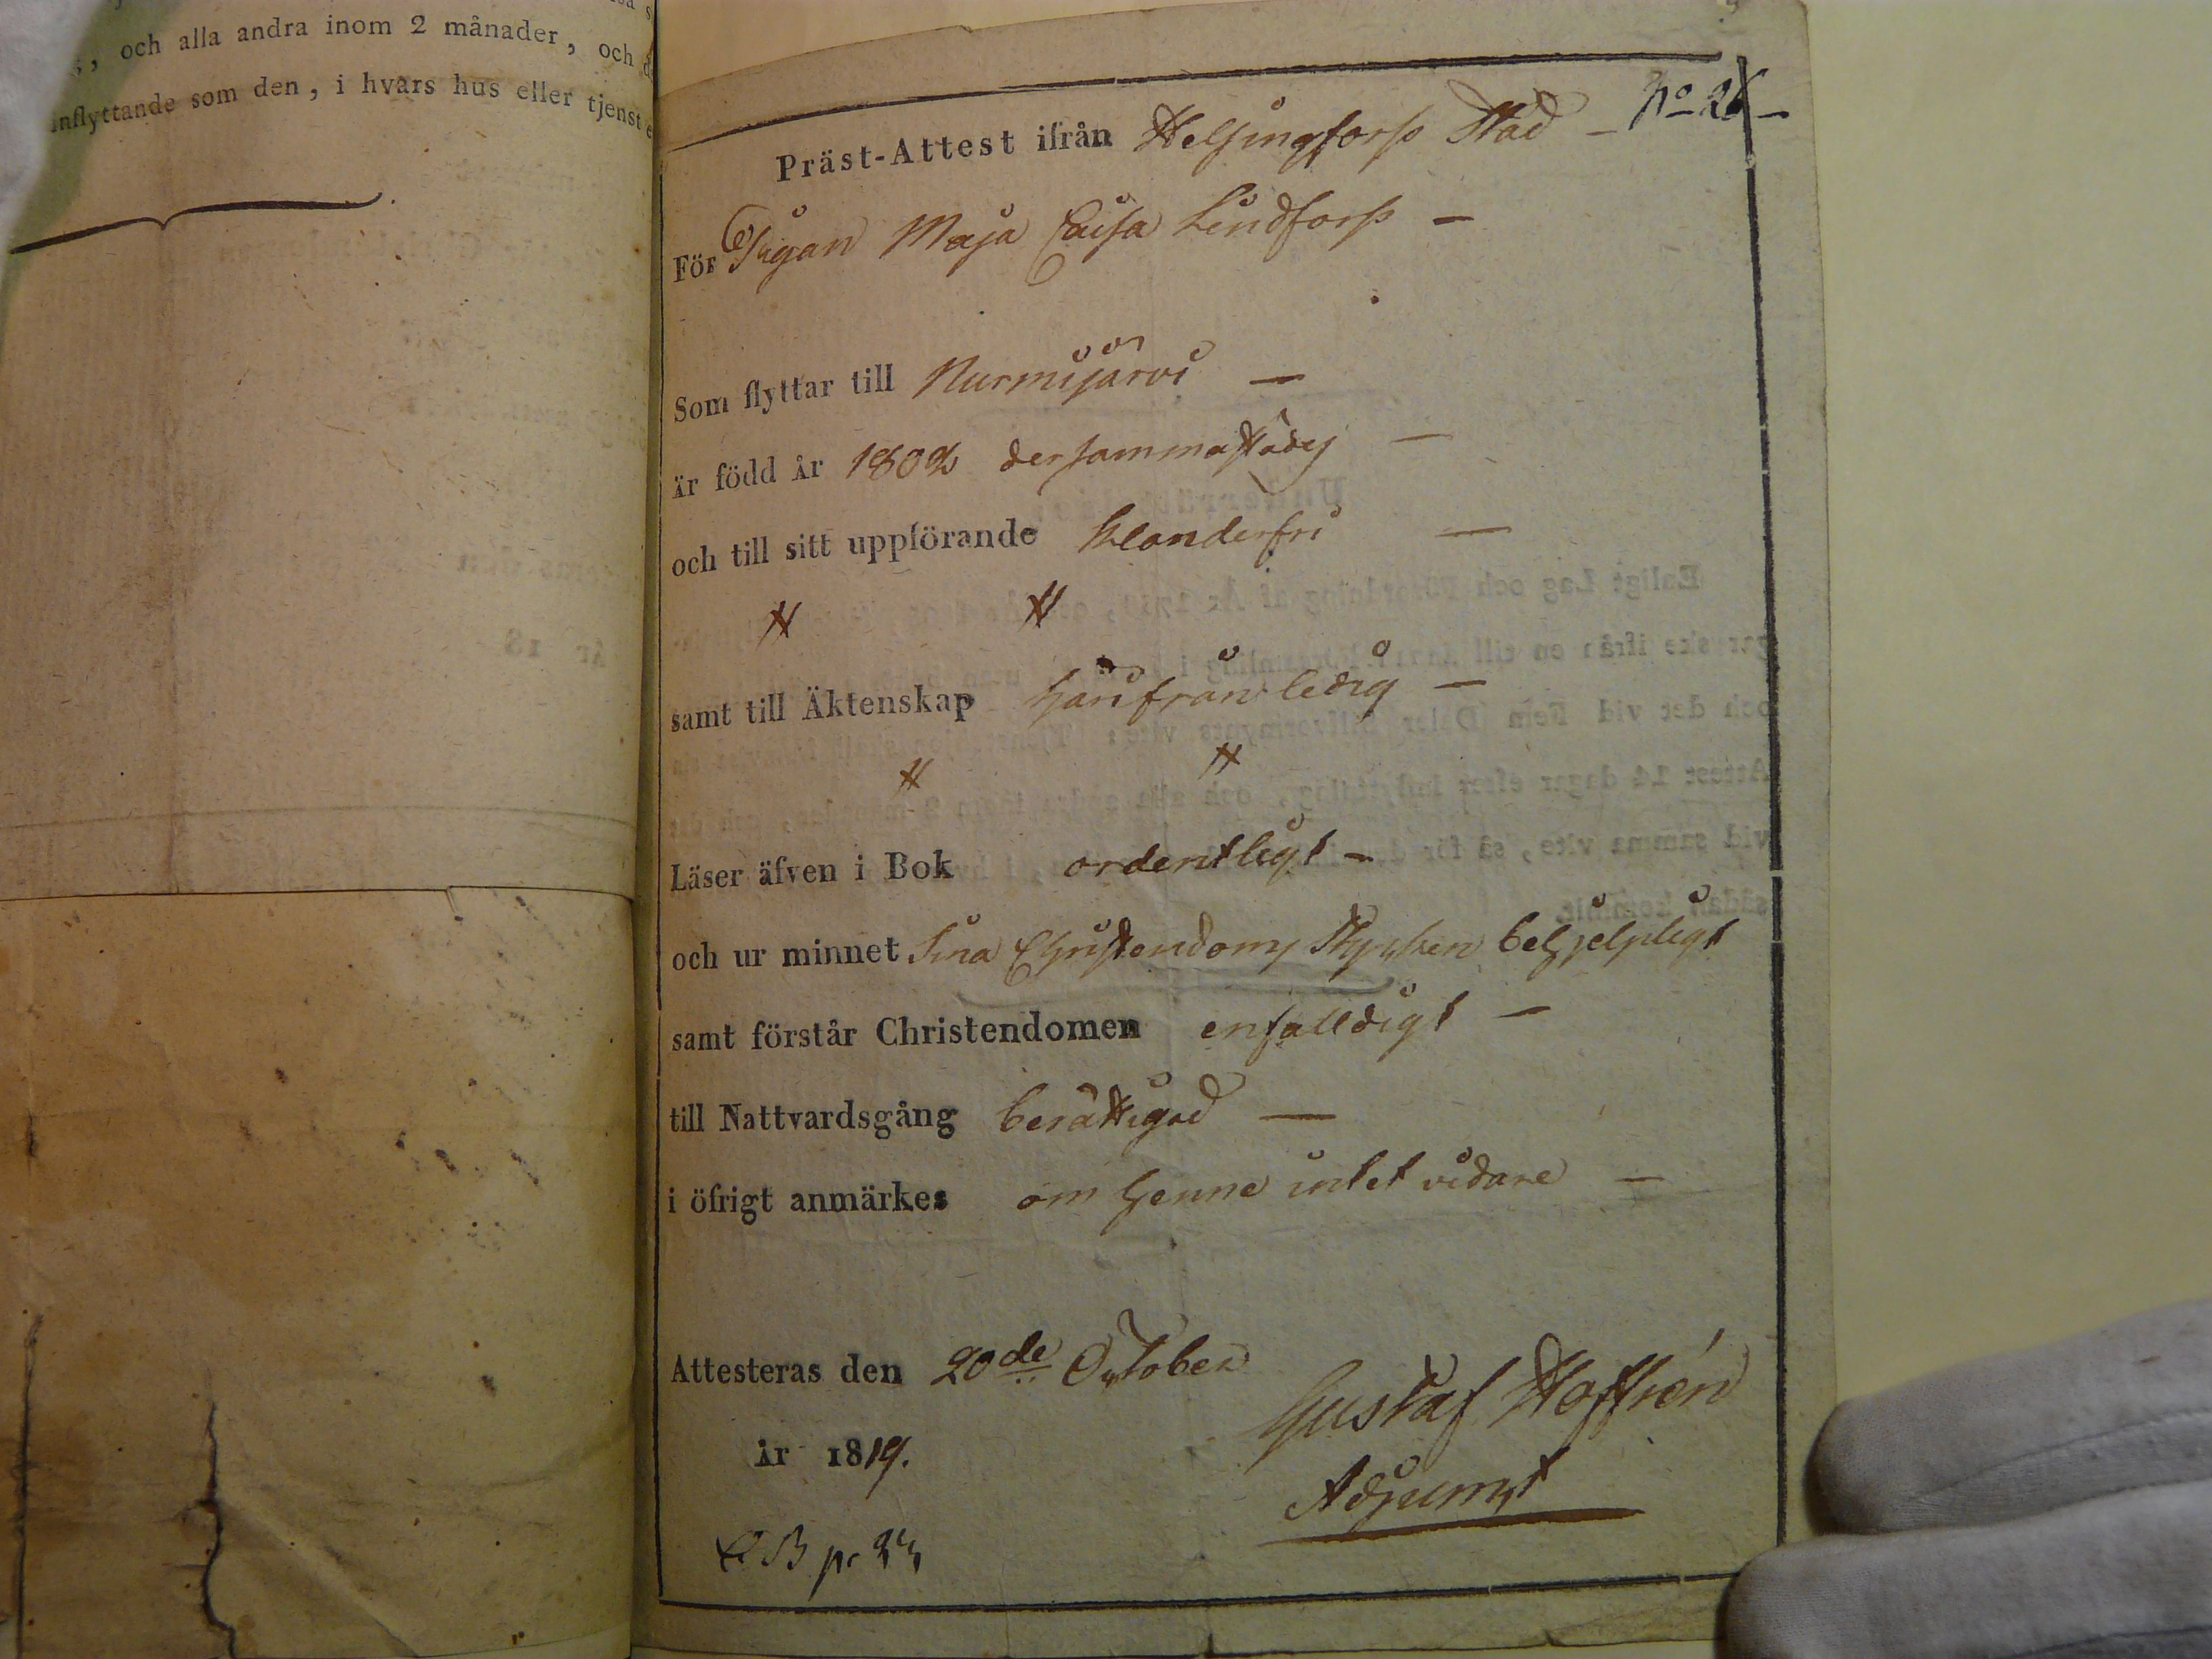 och alla andra inom 2 månader, och
inflyttande som den, i hvars hus eller tjenst
Präst-Attest ifrån Helsingfors Stad - No 26 -
För Pigan Maja Caisa Lindfors -
Som flyttar till Nurmijärvi -
är född år 1802 dersammastädes -
och till sitt uppförande klanderfri -
samt till Äktenskap härifrån ledig -
Läser äfven i Bok ordentligt -
och ur minnet Sina Christendoms Stycken behjelpligt
samt förstår Christendomen enfalldigt -
till Nattvardsgång berättigad -
i öfrigt anmärkes om henne intet vidare -
Attesteras den 20de October
år 1819.
Gustaf Hoffrén
Adjunct